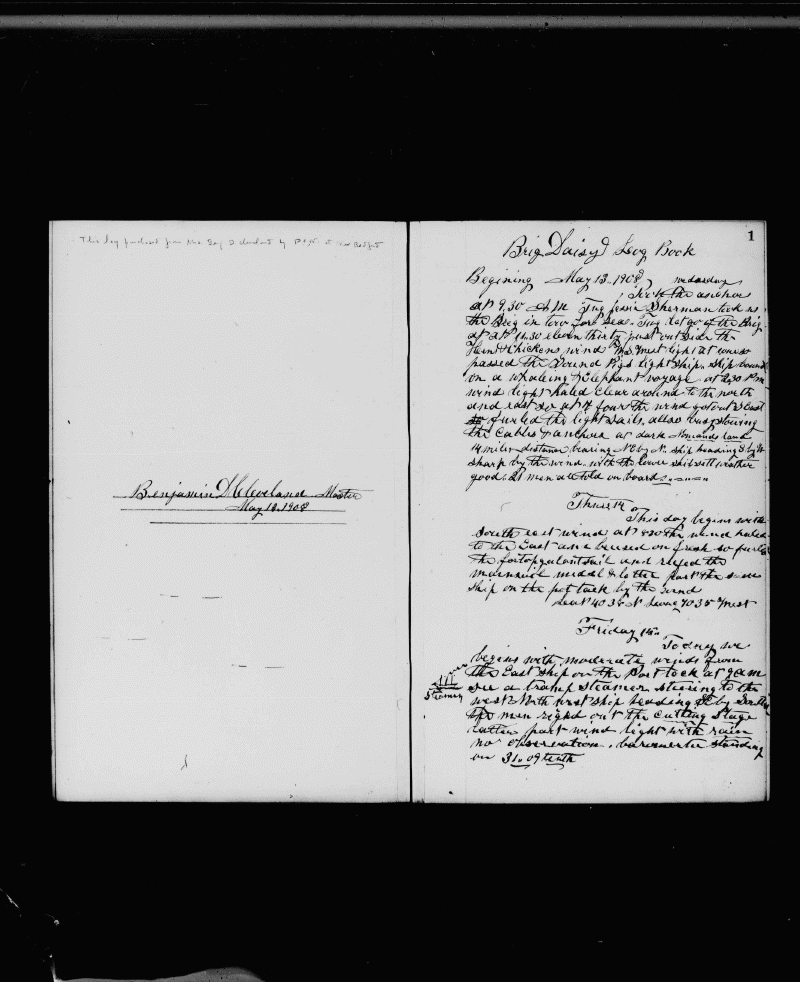 This log purchased from Mrs. Benj. D. Cleveland by
Benjamin D. Cleveland Master
May 13. 1908
1
Brig Daisy Log Book
Begining May 13. 1908 wedasday
Took the anchor
at 9.30 AM Tug Jessie Sherman took us
the Brig in tow for sea. Tug let go of the Brig
at 11.30 eleven thirty just out side the
Hen & Chickens wind West light at
passed the Sound Pigs light ship. Ship bound
on a whaleing & Elephant voyage at 2.30 P m
wind light haled clear around to the north
and east at 4 four the wind East
furled the light sails. allso stowing
the cables & anchors at dark Nomands land
14 miles distance bearing NE by N. ship heading S by W
sharp by the wind with the lower sails sett weather
good. men all told on board
Thurs 14
This day begins with
south east wind at the wind haled
to the East and breased on fresh so furled
the fortopgalantsail and refed the
mainsail midal & latter part the same
ship on the pot tack by the wind
Lat 40 38 N Long 70 35 West
Friday 15
To day we
begins with moderate winds from
the East ship on the Port tack at 9 am
see a tramp steamer stearing to the
Steamer
west North west ship heading by South
the men riged out the Cutting Stage
latter part wind light with rain
no observation. baromenter standing
on 31.09 tenth